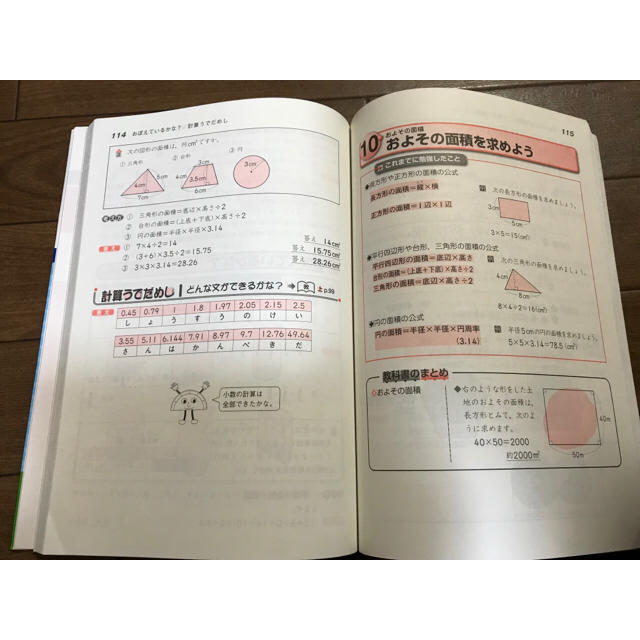 114 おぼえているかな？／計算うでだめし
次の図形の面積は，何cm²ですか。
① 三角形 ② 台形 ③ 円
5cm
4cm
7cm
3cm
4cm
3.5cm
6cm
3cm
考え方 ① 三角形の面積＝底辺×高さ÷2
② 台形の面積＝(上底＋下底)×高さ÷2
③ 円の面積＝半径×半径×3.14
答え ① 7×4÷2＝14 答え 14cm²
② (3+6)×3.5÷2＝15.75 答え 15.75cm²
③ 3×3×3.14＝28.26 答え 28.26cm²
計算うでだめし どんな文ができるかな？ 上p.99
答え
0.45 0.79 1 1.8 1.97 2.05 2.15 2.5
し ょ う す う の け い
3.55 5.11 6.144 7.91 8.97 9.7 12.76 49.64
さ ん は か ん ぺ き だ
小数の計算は
全部できたかな。
115
およその面積
10 およその面積を求めよう
これまでに勉強したこと
長方形や正方形の面積の公式
長方形の面積＝縦×横
正方形の面積＝1辺×1辺
次の長方形の面積を求めましょう。
3cm
5cm
3×5＝15(cm²)
平行四辺形や台形，三角形の面積の公式
平行四辺形の面積＝底辺×高さ
台形の面積＝(上底＋下底)×高さ÷2
三角形の面積＝底辺×高さ÷2
次の三角形の面積を求めましょう。
4cm
8cm
8×4÷2＝16(cm²)
円の面積の公式
円の面積＝半径×半径×円周率
(3.14)
半径5cmの円の面積を求めましょう。
5×5×3.14＝78.5(cm²)
教科書のまとめ
およその面積
右のような形をした土
地のおよその面積は，
長方形とみて，次のよ
うに求めます。
40×50＝2000
約2000m²
40m
50m